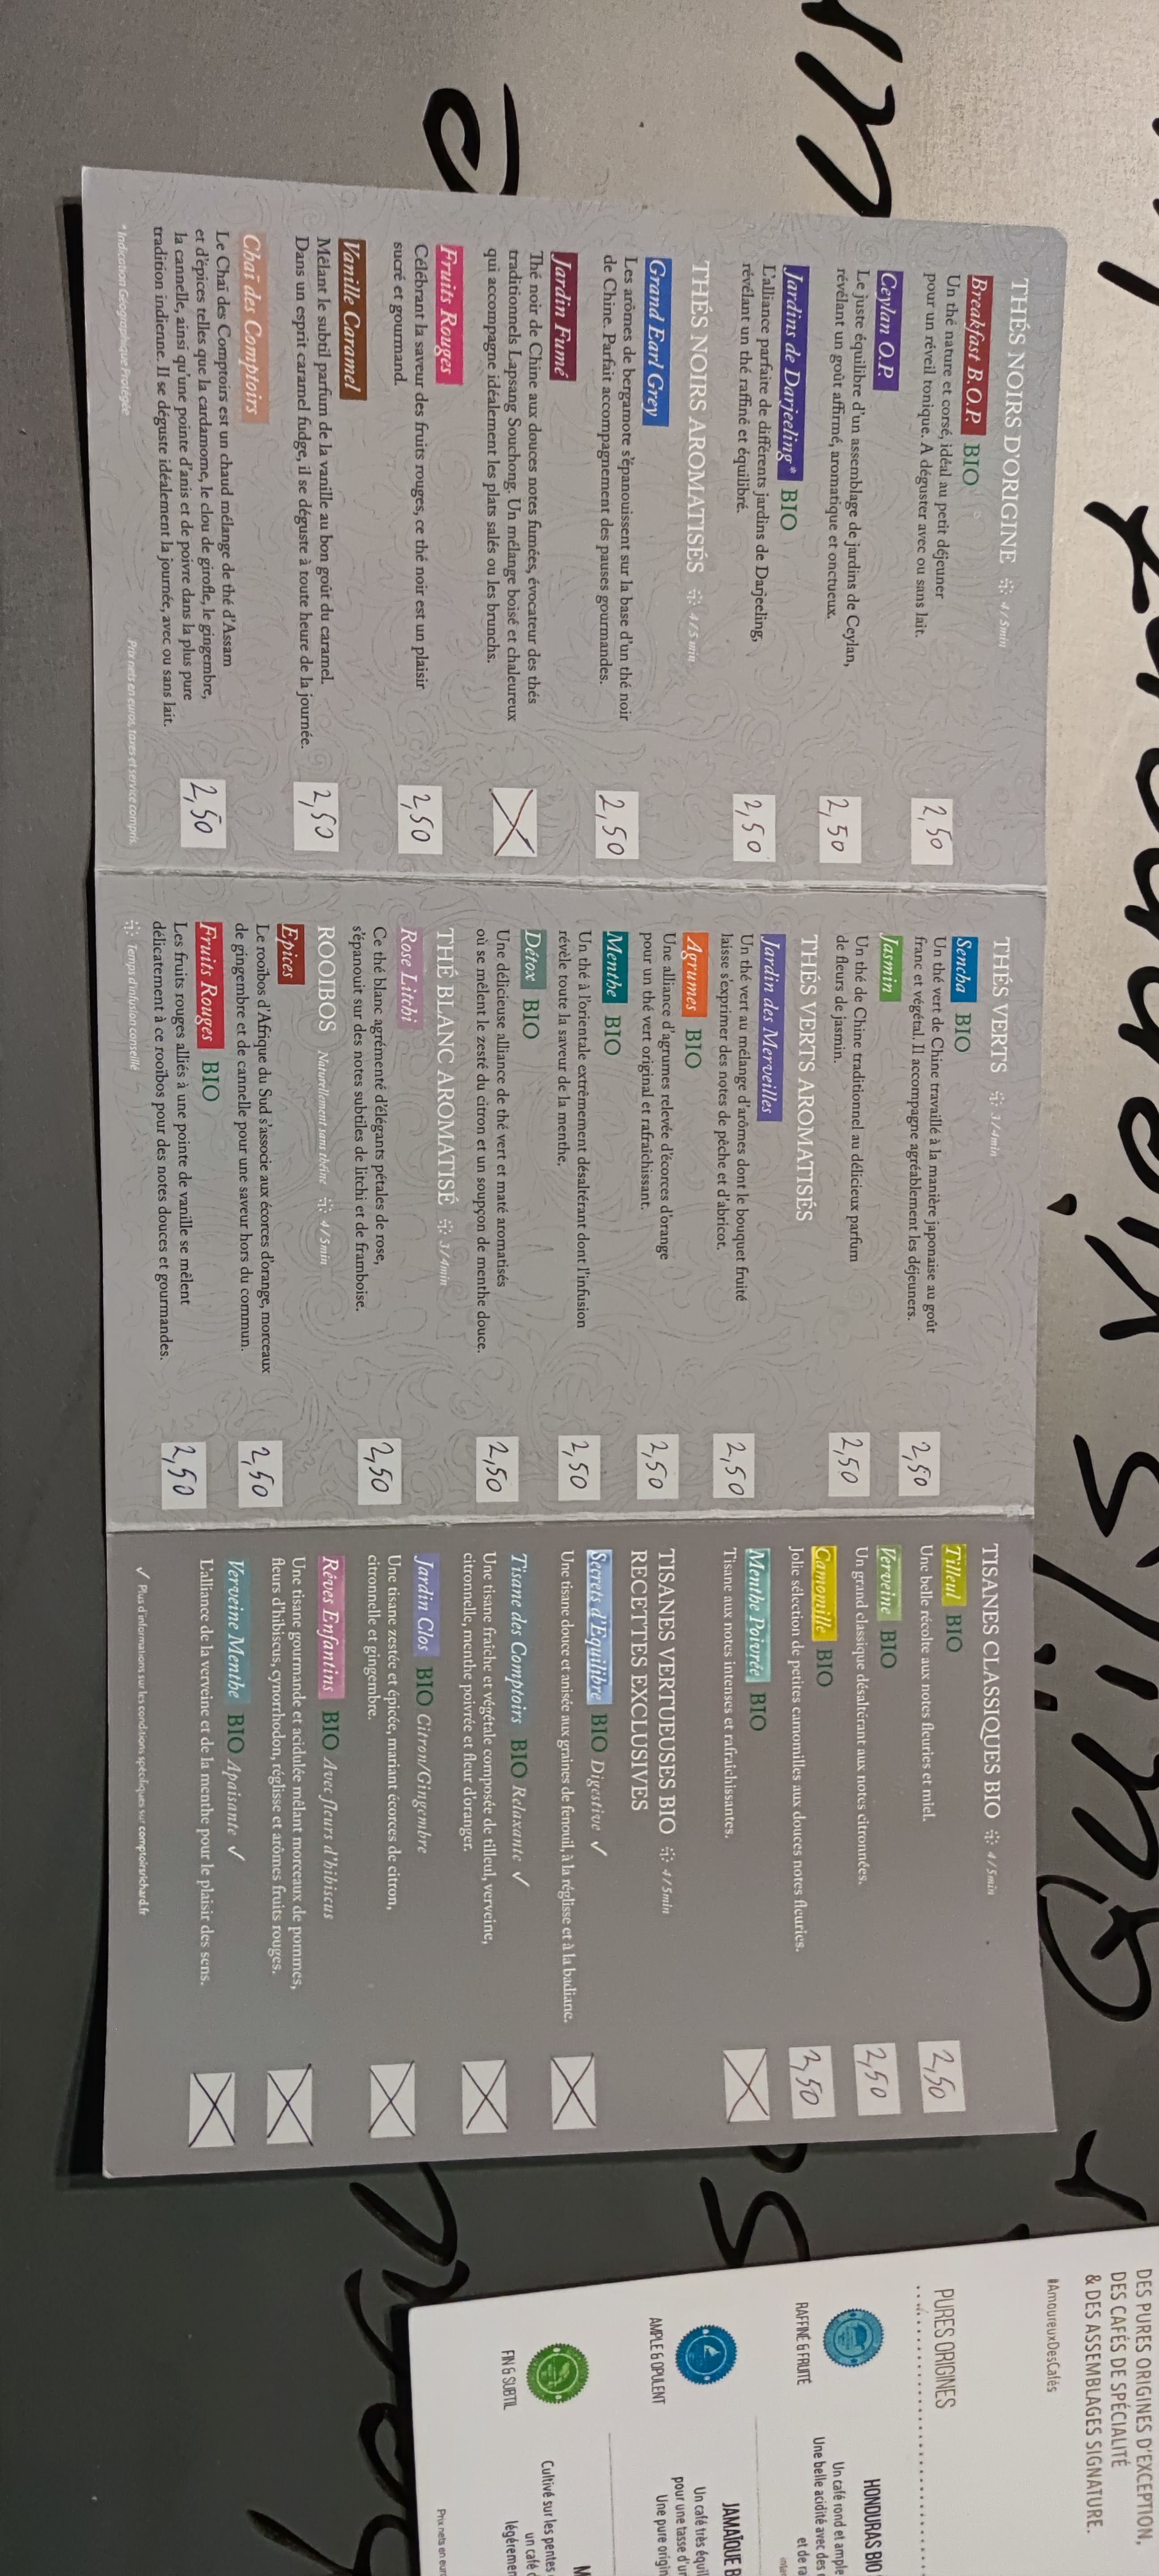 THÉS NOIRS D'ORIGINE 4/5min
Breakfast B.O.P BIO
Un thé nature et corsé, idéal au petit déjeuner
pour un réveil tonique. A déguster avec ou sans lait.
2,50
Ceylan O.P.
Le juste équilibre d'un assemblage de jardins de Ceylan,
révélant un goût affirmé, aromatique et onctueux.
2,50
Jardins de Darjeeling* BIO
L'alliance parfaite de différents jardins de Darjeeling,
révélant un thé raffiné et équilibré.
2,50
THÉS NOIRS AROMATISÉS 4/5 min
Grand Earl Grey
Les arômes de bergamote s'épanouissent sur la base d'un thé noir
de Chine. Parfait accompagnement des pauses gourmandes.
2,50
Jardin Fumé
Thé noir de Chine aux douces notes fumées, évocateur des thés
traditionnels Lapsang Souchong. Un mélange boisé et chaleureux
qui accompagne idéalement les plats salés ou les brunchs.
Fruits Rouges
Célébrant la saveur des fruits rouges, ce thé noir est un plaisir
sucré et gourmand.
2,50
Vanille Caramel
Mêlant le subtil parfum de la vanille au bon goût du caramel.
Dans un esprit caramel fudge, il se déguste à toute heure de la journée.
2,50
Chaï des Comptoirs
Le Chaï des Comptoirs est un chaud mélange de thé d'Assam
et d'épices telles que la cardamome, le clou de girofle, le gingembre,
la cannelle, ainsi qu'une pointe d'anis et de poivre dans la plus pure
tradition indienne. Il se déguste idéalement la journée, avec ou sans lait.
2,50
* Indication Géographique Protégée
Prix nets en euros, taxes et service compris.
THÉS VERTS 3/4min
Sencha BIO
Un thé vert de Chine travaillé à la manière japonaise au goût
franc et végétal. Il accompagne agréablement les déjeuners.
2,50
Jasmin
Un thé de Chine traditionnel au délicieux parfum
de fleurs de jasmin.
2,50
THÉS VERTS AROMATISÉS
Jardin des Merveilles
Un thé vert au mélange d'arômes dont le bouquet fruité
laisse s'exprimer des notes de pêche et d'abricot.
2,50
Agrumes BIO
Une alliance d'agrumes relevée d'écorces d'orange
pour un thé vert original et rafraîchissant.
2,50
Menthe BIO
Un thé à l'orientale extrêmement désaltérant dont l'infusion
révèle toute la saveur de la menthe.
2,50
Détox BIO
Une délicieuse alliance de thé vert et maté aromatisés
où se mêlent le zesté du citron et un soupçon de menthe douce.
2,50
THÉ BLANC AROMATISÉ 3/4min
Rose Litchi
Ce thé blanc agrémenté d'élégants pétales de rose,
s'épanouit sur des notes subtiles de litchi et de framboise.
2,50
ROOIBOS Naturellement sans théine 4/5min
Epices
Le rooïbos d'Afrique du Sud s'associe aux écorces d'orange, morceaux
de gingembre et de cannelle pour une saveur hors du commun.
2,50
Fruits Rouges BIO
Les fruits rouges alliés à une pointe de vanille se mêlent
délicatement à ce rooïbos pour des notes douces et gourmandes.
2,50
Temps d'infusion conseillé
TISANES CLASSIQUES BIO 4/5min
Tilleul BIO
Une belle récolte aux notes fleuries et miel.
2,50
Verveine BIO
Un grand classique désaltérant aux notes citronnées.
2,50
Camomille BIO
Jolie sélection de petites camomilles aux douces notes fleuries.
2,50
Menthe Poivrée BIO
Tisane aux notes intenses et rafraîchissantes.
TISANES VERTUEUSES BIO 4/5min
RECETTES EXCLUSIVES
Secrets d'Equilibre BIO Digestive ✓
Une tisane douce et anisée aux graines de fenouil, à la réglisse et à la badiane.
Tisane des Comptoirs BIO Relaxante ✓
Une tisane fraîche et végétale composée de tilleul, verveine,
citronnelle, menthe poivrée et fleur d'oranger.
Jardin Clos BIO Citron/Gingembre
Une tisane zestée et épicée, mariant écorces de citron,
citronnelle et gingembre.
Rêves Enfantins BIO Avec fleurs d'hibiscus
Une tisane gourmande et acidulée mêlant morceaux de pommes,
fleurs d'hibiscus, cynorrhodon, réglisse et arômes fruits rouges.
Verveine Menthe BIO Apaisante ✓
L'alliance de la verveine et de la menthe pour le plaisir des sens.
✓ Plus d'informations sur les conditions spécifiques sur comptoirsrichard.fr
DES PURES ORIGINES D'EXCEPTION,
DES CAFÉS DE SPÉCIALITÉ
& DES ASSEMBLAGES SIGNATURE.
#AmoureuxDesCafés
PURES ORIGINES
RAFFINÉ & FRUITÉ
HONDURAS BIO
Un café rond et ample
Une belle acidité avec des
et de
AMPLE & OPULENT
JAMAÏQUE B
Un café très équil
pour une tasse d'u
Une pure origin
FIN & SUBTIL
M
Cultivé sur les pentes
un café
légèremen
Prix nets en eur